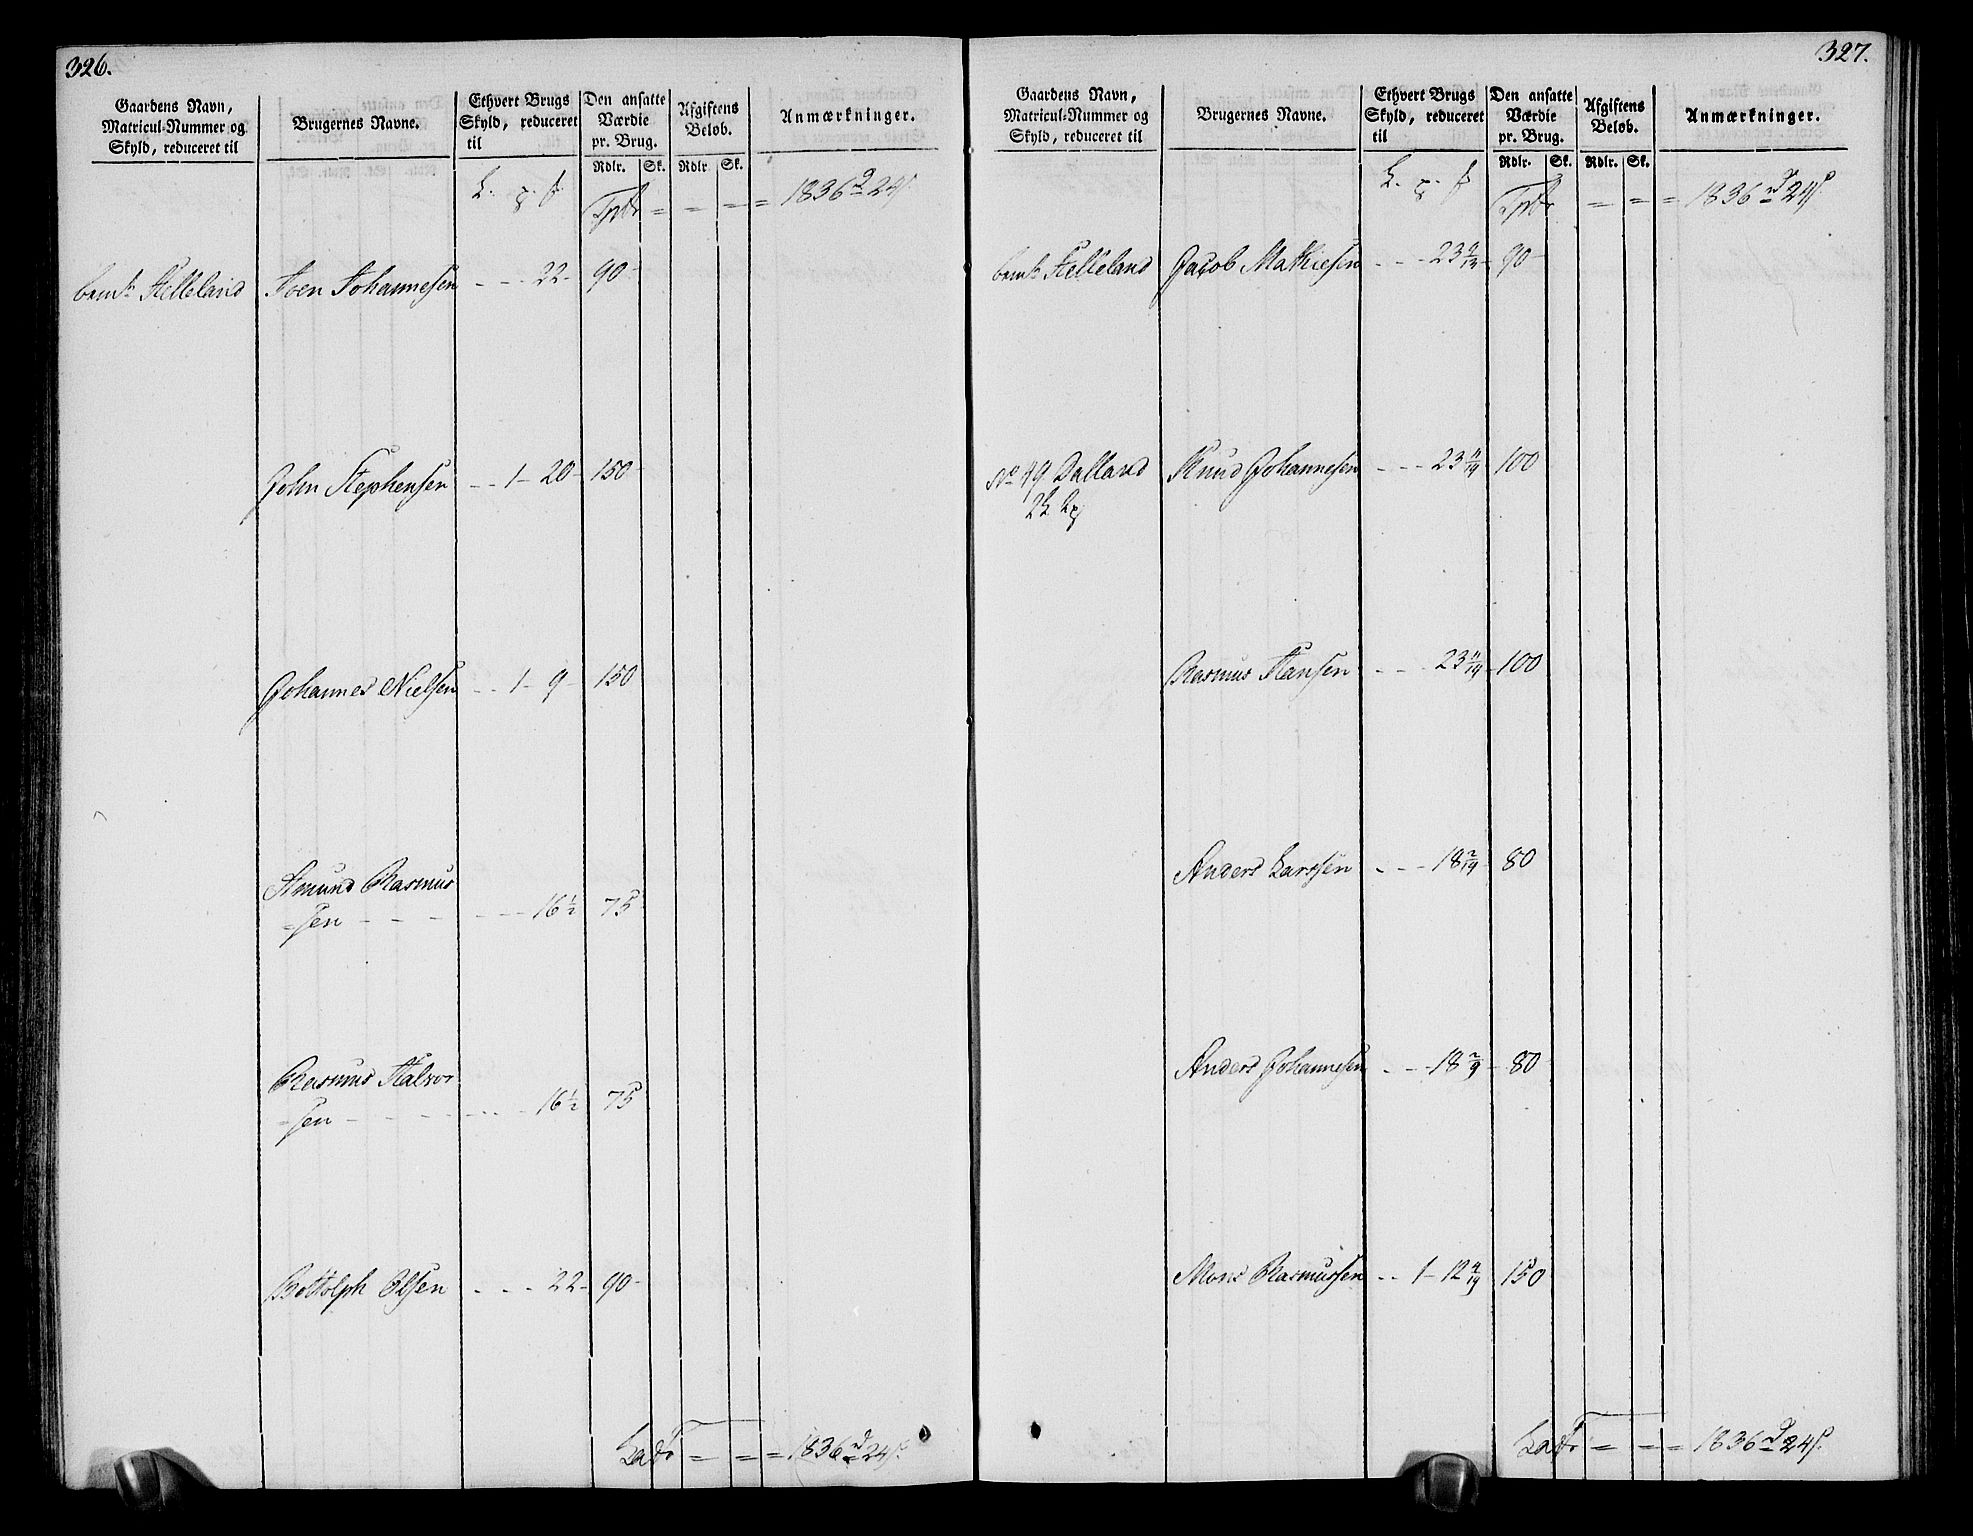 326.
Gaardens Navn,
Matricul-Nummer og
Skyld, reduceret til
Brugernes Navne.
Ethvert Brugs
Skyld, reduceret
til
Den ansatte
Værdie
pr. Brug.
Afgiftens
Beløb.
Anmærkninger.
Rdlr. Sk. Rdlr Sk.
1836 d 24 s
Helleland Iver Johannesen - - - 22 - 90 -
John Stephensen - - 1 - 20 - 150 -
Johannes Nielsen - - 1 - 9 - 150
Amund Rasmus
=sen - - - - - - 16 1/2 75 -
Rasmus Halvor
=sen - - - - - - 16 1/2 75
Bottolph Olsen - - - 22 - 90 -
Latr = = = 1836 d 24 s.
327.
Gaardens Navn,
Matricul-Nummer og
Skyld, reduceret til
Brugernes Navne.
Ethvert Brugs
Skyld, reduceret
til
Den ansatte
Værdie
pr. Brug.
Afgiftens
Beløb.
Anmærkninger.
Rdlr. Sk. Rdlr. Sk.
1836 d 24 s
Helleland Jacob Mathiesen - - - 23 90 -
No 49 Dalland Knud Johannesen - - - 23 11/19 100
Rasmus Hansen - - - 23 11/19 - 100
Anders Larssen - - - 18 2/19 - 80
Anders Johannesen - - - 18 2/9 - 80
Mons Rasmussen - - 1 - 12 4/19 150
Latr = = = 1836 d 24 s.